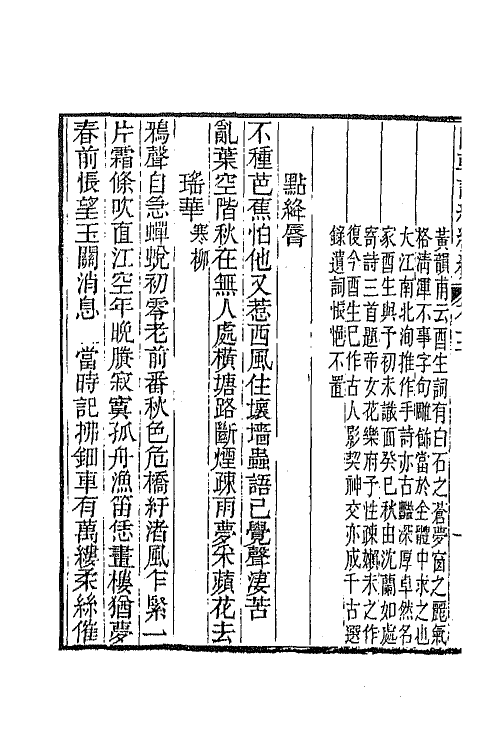 黃韻甫云酉生詞有白石之蒼夢窗之麗氣
格淸渾不事字句雕飾當於全體中求之也
大江南北洵推作手詩亦古豔深厚卓然名
家酉生與予初未識面癸巳秋由沈蘭如處
寄詩三首題帝女花樂府予性疎嬾未之作
復今酉生已作古人影契神交亦成千古選
錄遺詞悵悒不置
點絳唇
不種芭蕉怕他又惹西風住壞墻蟲語已覺聲淒苦
亂葉空階秋在無人處橫塘路斷煙疎雨夢采蘋花去
瑤華 寒柳
鴉聲自急蟬蛻初零老前番秋色危橋紆渚風乍緊一
片霜條吹直江空年晚賸寂寞孤舟漁笛恁畫樓猶夢
春前悵望玉關消息 當時記拂鈿車有萬縷柔絲催